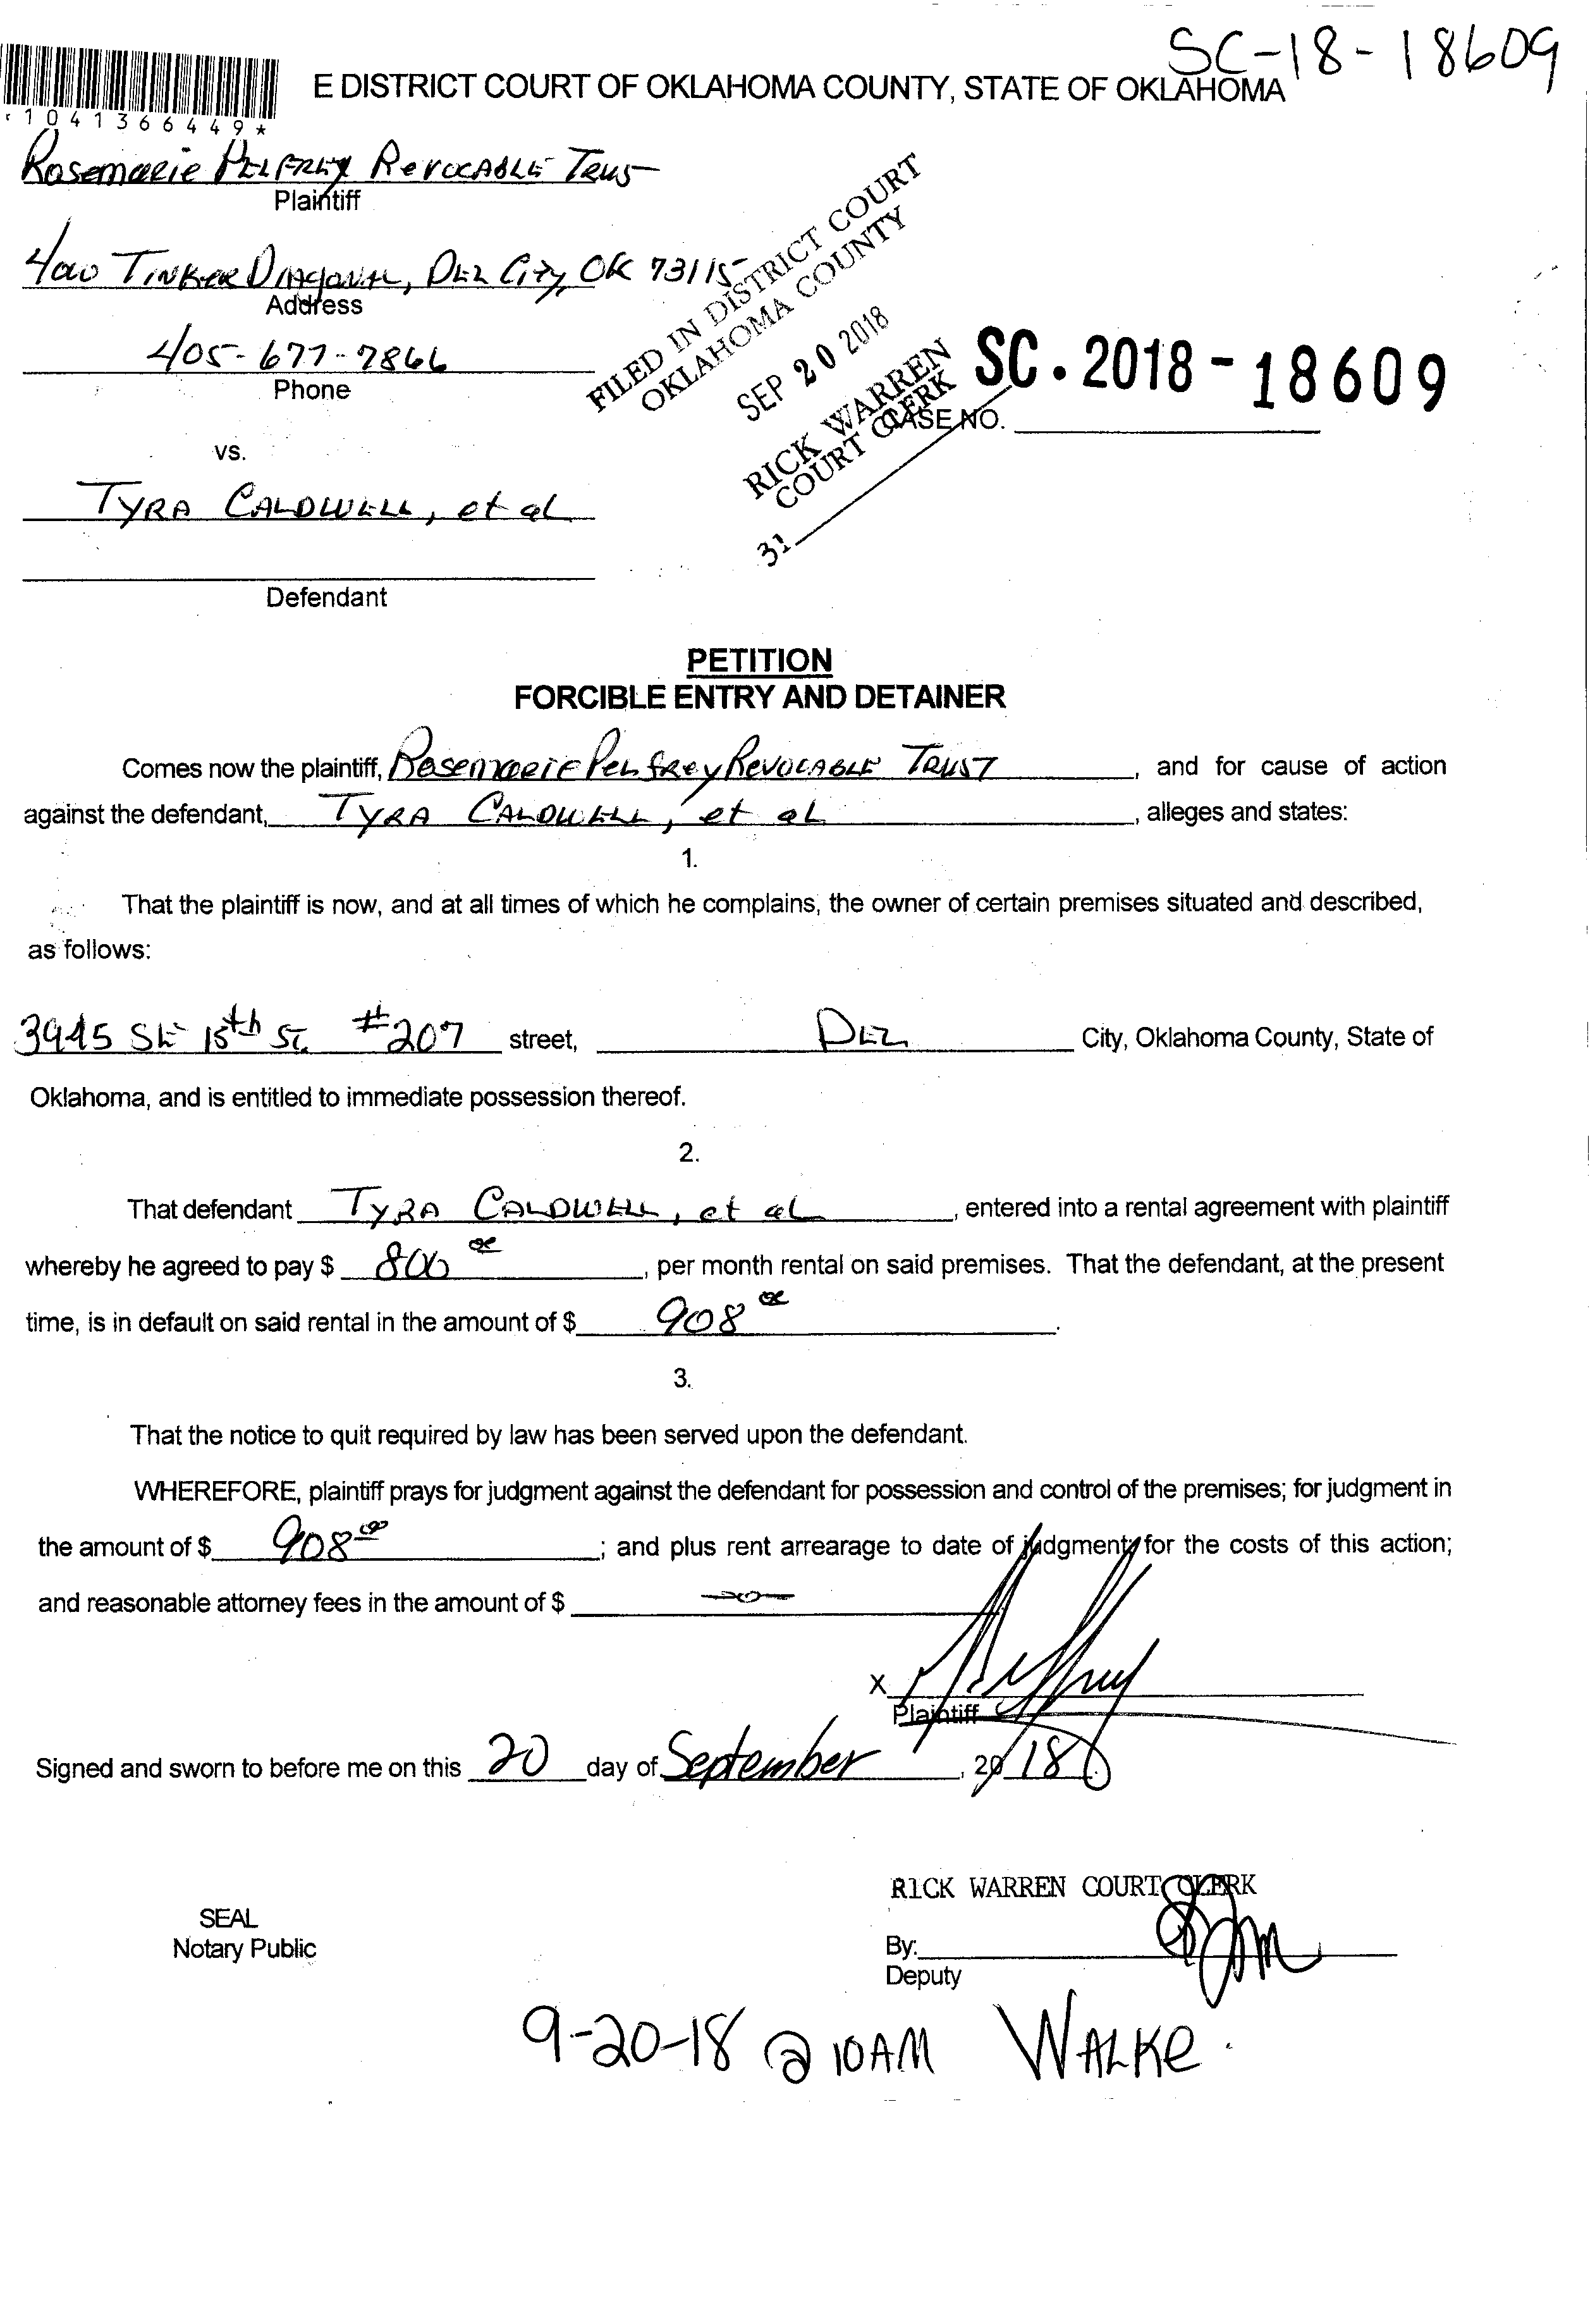 SC-18-18609
E DISTRICT COURT OF OKLAHOMA COUNTY, STATE OF OKLAHOMA
*1041366449*
Rosemarie Pelfrey Revocable Trus
Plaintiff
Tinker Diagonal, Del City, OK 73115
Address
405-677-7866
Phone
FILED IN DISTRICT COURT
OKLAHOMA COUNTY
SEP 20 2018
RICK WARREN
COURT CLERK
31
SC.2018-18609
CASE NO.
vs.
Tyra Caldwell, et al
Defendant
PETITION
FORCIBLE ENTRY AND DETAINER
Comes now the plaintiff, Rosemarie Pelfrey Revocable Trust, and for cause of action
against the defendant, Tyra Caldwell, et al, alleges and states:
1.
That the plaintiff is now, and at all times of which he complains, the owner of certain premises situated and described,
as follows:
3945 SE 15th St. #207 street, Del City, Oklahoma County, State of
Oklahoma, and is entitled to immediate possession thereof.
2.
That defendant Tyra Caldwell, et al, entered into a rental agreement with plaintiff
whereby he agreed to pay $ 800 00, per month rental on said premises. That the defendant, at the present
time, is in default on said rental in the amount of $ 908 00.
3.
That the notice to quit required by law has been served upon the defendant.
WHEREFORE, plaintiff prays for judgment against the defendant for possession and control of the premises; for judgment in
the amount of $ 908 00; and plus rent arrearage to date of judgment; for the costs of this action;
and reasonable attorney fees in the amount of $ -0-
X
Plaintiff
Signed and sworn to before me on this 20 day of September, 2018.
RICK WARREN COURT CLERK
SEAL
Notary Public
By:
Deputy
9-20-18 @ 10AM WALKE